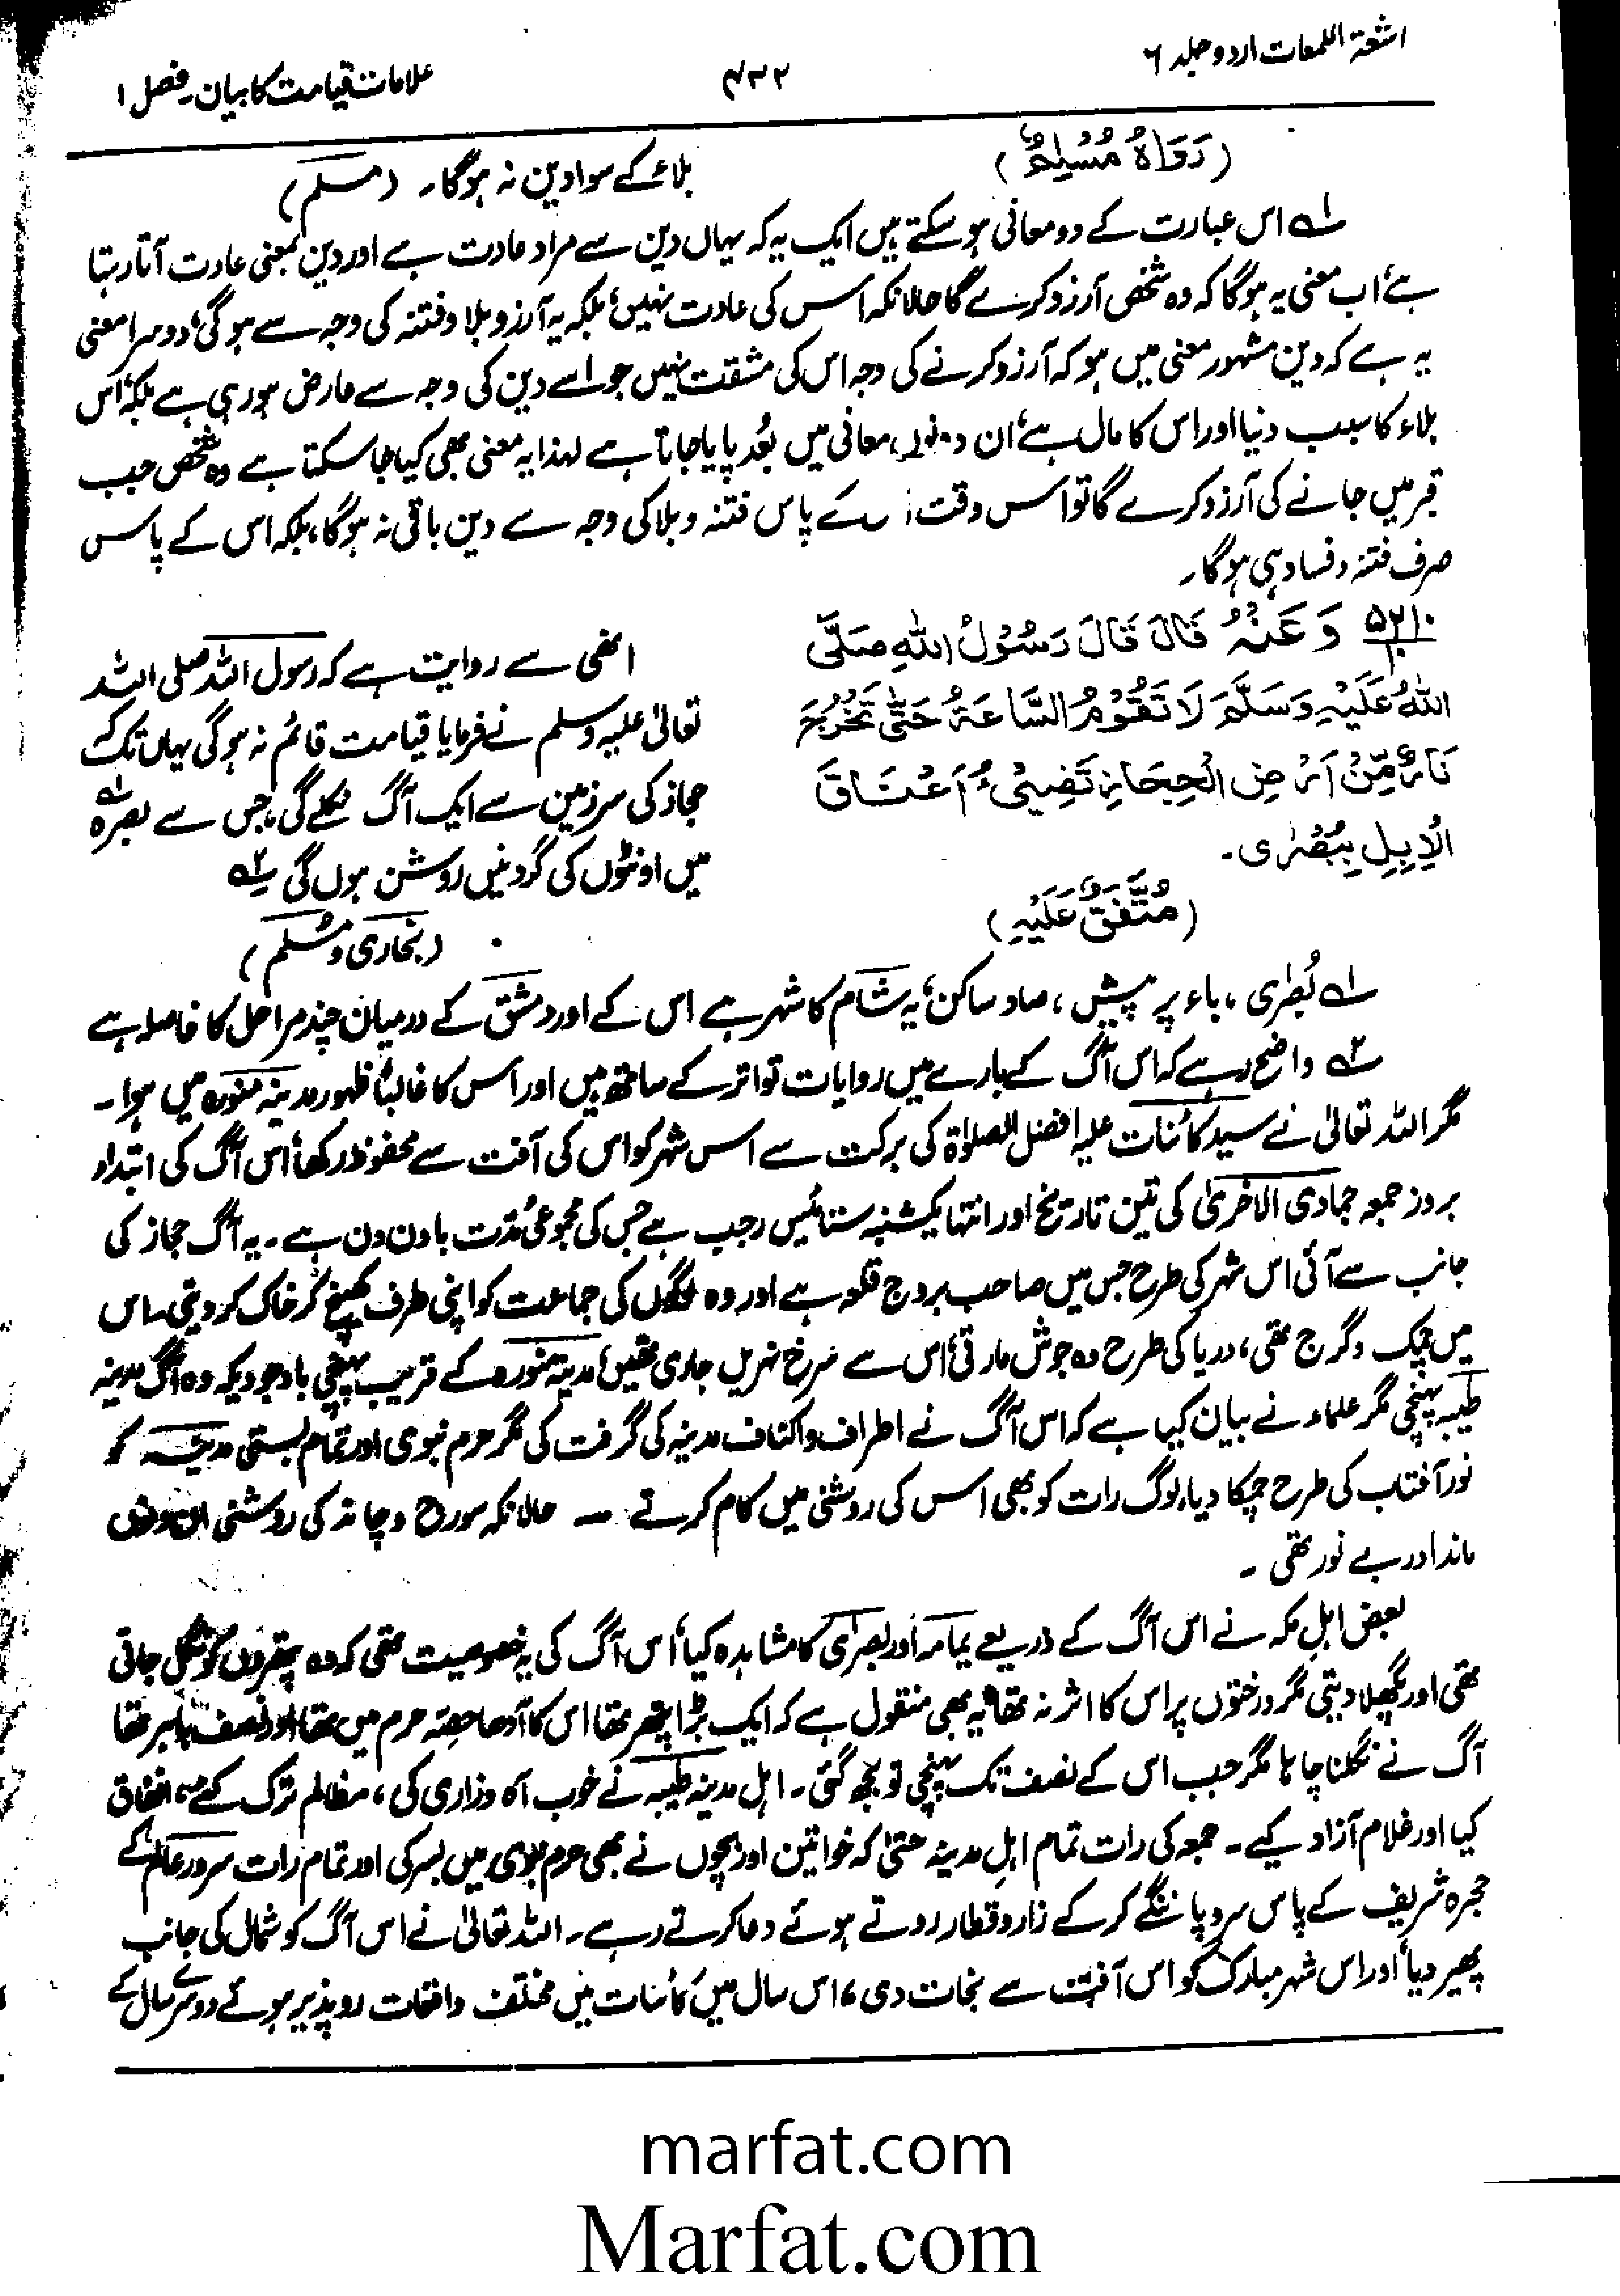 اشعۃ اللمعات اردو جلد ۶
۴۳۲
علامات قیامت کا بیان۔ فصل ۱
(رَوَاهُ مُسْلِمٌ)
بلاء کے سوا دین نہ ہوگا۔ (مسلم)
۱؎ اس عبارت کے دو معانی ہو سکتے ہیں ایک یہ کہ یہاں دین سے مراد عادت ہے اور دین بمعنی عادت آتا رہتا
ہے، اب معنی یہ ہوگا کہ وہ شخص آرزو کرے گا حالانکہ اس کی عادت نہیں، بلکہ یہ آرزو بلا و فتنہ کی وجہ سے ہوگی، دوسرا معنی
یہ ہے کہ دین مشہور معنی میں ہو کہ آرزو کرنے کی وجہ اس کی مشقت نہیں جو اسے دین کی وجہ سے عارض ہو رہی ہے بلکہ اس
بلاء کا سبب دنیا اور اس کا مال ہے، ان دونوں معانی میں بُعد پایا جاتا ہے لہذا یہ معنی بھی کیا جا سکتا ہے وہ شخص جب
قبر میں جانے کی آرزو کرے گا تو اس وقت کے پاس فتنہ و بلا کی وجہ سے دین باقی نہ ہوگا، بلکہ اس کے پاس
صرف فتنہ و فساد ہی ہوگا۔
۵۲۱۰ وَعَنْهُ قَالَ قَالَ رَسُوْلُ اللهِ صَلَّى
اللهُ عَلَيْهِ وَسَلَّمَ لَا تَقُوْمُ السَّاعَةُ حَتّٰى تَخْرُجَ
نَارٌ مِّنْ اَرْضِ الْحِجَازِ تَضِيْءُ اَعْنَاقَ
الْاِبِلِ بِبُصْرٰى۔
(مُتَّفَقٌ عَلَيْهِ)
انھی سے روایت ہے کہ رسول اللہ صلی اللہ
تعالیٰ علیہ وسلم نے فرمایا قیامت قائم نہ ہوگی یہاں تک کہ
حجاز کی سرزمین سے ایک آگ نکلے گی، جس سے بصرہ۱؎
میں اونٹوں کی گردنیں روشن ہوں گی ۲؎
(بخاری و مسلم)
۱؎ بُصْرٰی، باء پر پیش، صاد ساکن، یہ شام کا شہر ہے اس کے اور دمشق کے درمیان چند مراحل کا فاصلہ ہے
۲؎ واضح رہے کہ اس آگ کے بارے میں روایات تواتر کے ساتھ ہیں اور اس کا غالباً ظہور مدینہ منورہ میں ہوا۔
مگر اللہ تعالیٰ نے سید کائنات علیہ افضل الصلوٰۃ کی برکت سے اس شہر کو اس کی آفت سے محفوظ رکھا، اس آگ کی ابتداء
بروز جمعہ جمادی الاخریٰ کی تین تاریخ اور انتہا یکشنبہ ستائیس رجب ہے جس کی مجموعی مُدّت باون دن ہے۔ یہ آگ حجاز کی
جانب سے آئی اس شہر کی طرح جس میں صاحب بروج قلعہ ہے اور وہ لوگوں کی جماعت کو اپنی طرف کھینچ کر خاک کر دیتی، اس
میں چمک و گرج تھی، دریا کی طرح وہ جوش مارتی، اس سے سرخ نہریں جاری تھیں، مدینہ منورہ کے قریب پہنچی باوجودیکہ وہ آگ مدینہ
طیبہ پہنچی مگر علماء نے بیان کیا ہے کہ اس آگ نے اطراف و اکناف مدینہ کی گرفت کی مگر حرم نبوی اور تمام بستی مدینہ کو
نور آفتاب کی طرح چمکا دیا، لوگ رات کو بھی اس کی روشنی میں کام کرتے ــ حالانکہ سورج و چاند کی روشنی ان دنوں
ماند اور بے نور تھی۔
بعض اہل مکہ نے اس آگ کے ذریعے یمامہ اور بصریٰ کا مشاہدہ کیا، اس آگ کی یہ خصوصیت تھی کہ وہ پتھروں کو نگل جاتی
تھی اور پگھلا دیتی مگر درختوں پر اس کا اثر نہ تھا، یہ بھی منقول ہے کہ ایک بڑا پتھر تھا اس کا آدھا حصّہ حرم میں تھا اور نصف باہر تھا
آگ نے نگلنا چاہا مگر جب اس کے نصف تک پہنچی تو بجھ گئی۔ اہل مدینہ طیبہ نے خوب آہ وزاری کی، مظالم ترک کئے، انفاق
کیا اور غلام آزاد کیے۔ جمعہ کی رات تمام اہلِ مدینہ حتیٰ کہ خواتین اور بچوں نے بھی حرم میں بسر کی اور تمام رات سرور عالم کے
حجرہ شریف کے پاس سرو پا ننگے کر کے زار و قطار روتے ہوئے دعا کرتے رہے۔ اللہ تعالیٰ نے اس آگ کو شمال کی جانب
پھیر دیا، اور اس شہر مبارک کو اس آفت سے نجات دی، اس سال میں کائنات میں مختلف واقعات رو پذیر ہوئے دوسرے سال کے
marfat.com
Marfat.com